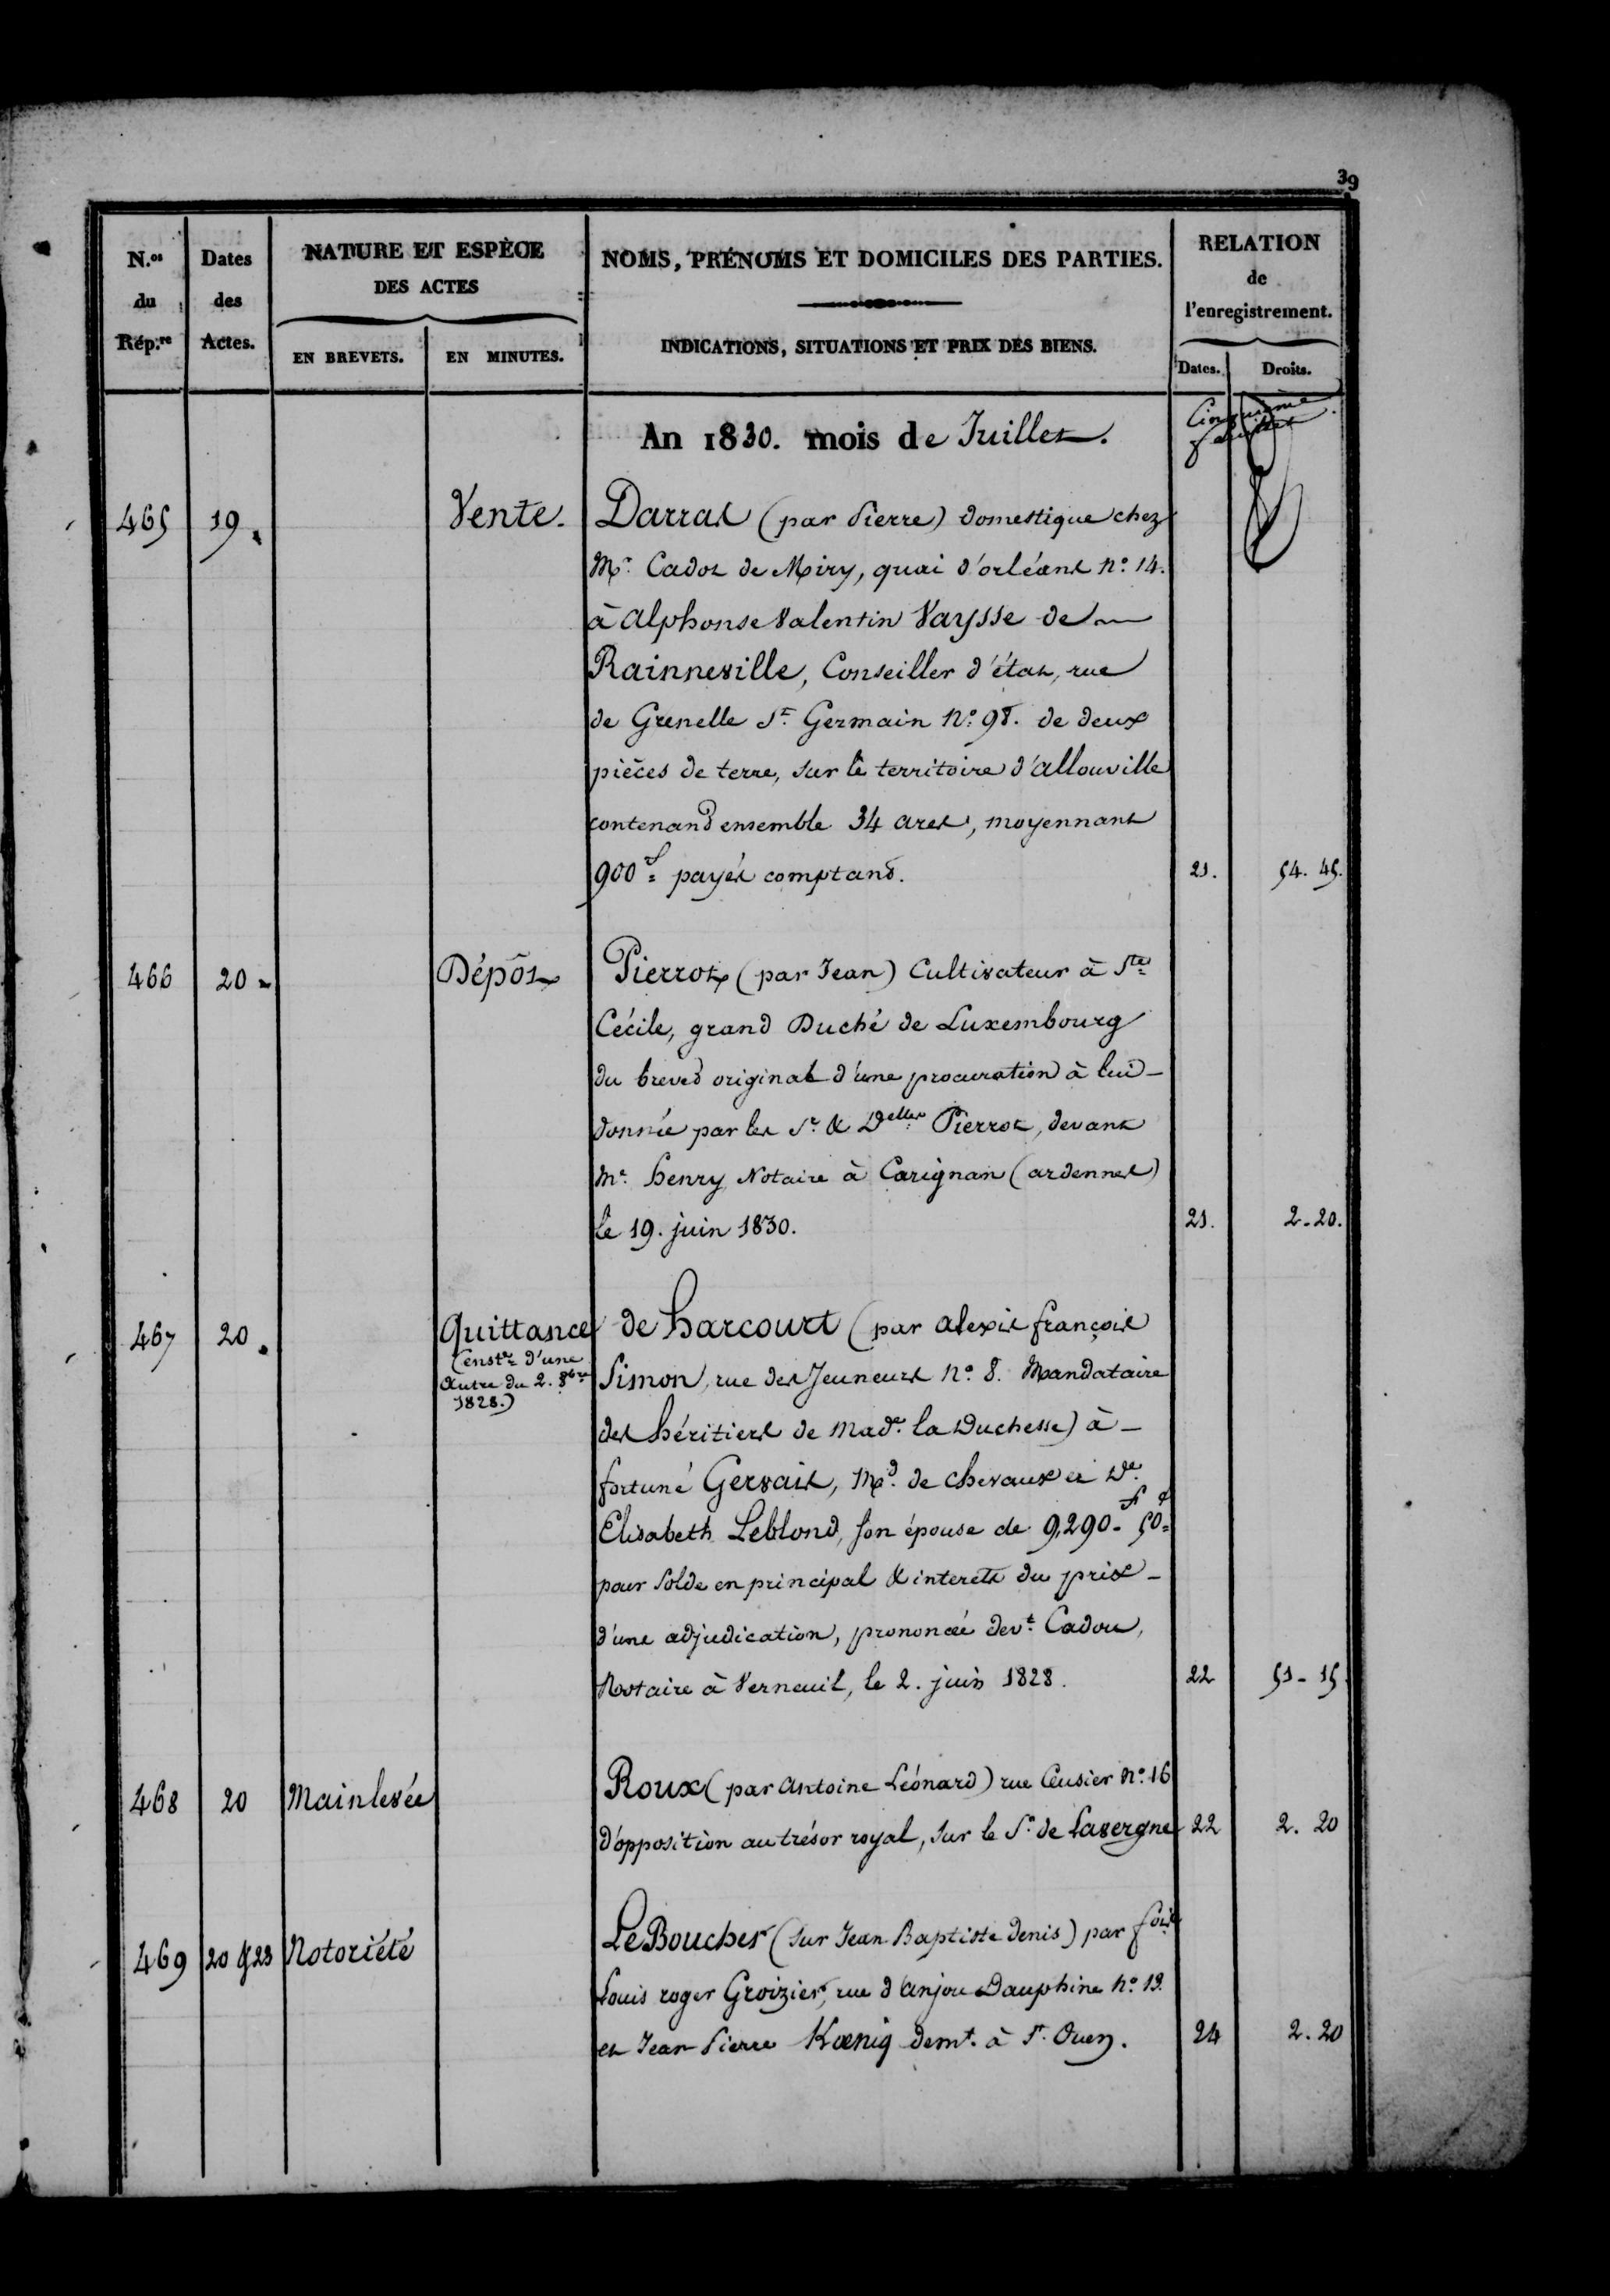 39
N.os du Rép.re
Dates des Actes.
NATURE ET ESPÈCE DES ACTES
EN BREVETS.
EN MINUTES.
NOMS, PRÉNOMS ET DOMICILES DES PARTIES.
INDICATIONS, SITUATIONS ET PRIX DES BIENS.
RELATION de l'enregistrement.
Dates.
Droits.
An 1830. mois de Juillet.
Cinquième feuillet
465 19. Vente. Darras (par Pierre) domestique chez
Mr. Cadot de Miry, quai d'orléans no. 14.
à Alphonse Valentin Vaysse de
Rainneville, Conseiller d'état, rue
de Grenelle St. Germain no. 98. de deux
pièces de terre, sur le territoire d'allouville
contenant ensemble 34 ares, moyennant
900f= payés comptant. 21. 54. 45.
466 20 Dépôt Pierrot (par Jean) Cultivateur à Ste
Cécile, grand Duché de Luxembourg
du brevet original d'une procuration à lui
donnée par les Sr. & Delles Pierrot, devant
Me. henry Notaire à Carignan (ardennes)
le 19. juin 1830. 21. 2-20.
467 20. Quittance de harcourt (par alexis françois
(enste d'une
autre du 2. 8bre
1828.)
Simon, rue des Jeuneurs no. 8. Mandataire
des héritiers de Made. la Duchesse) à
fortuné Gervais, Md. de chevaux et De.
Elisabeth Leblond, son épouse de 9,290-f 50=c
pour solde en principal & interets du prix
d'une adjudication, prononcée devt. Cadou,
Notaire à Verneuil, le 2. juin 1828. 22 51-15
468 20 Mainlevée Roux (par Antoine Léonard) rue Censier no. 16
d'opposition au trésor royal, sur le Sr. de Lavergne 22 2. 20
469 20 & 23 Notoriété LeBoucher (sur Jean Baptiste denis) par fois
Louis roger Groizier, rue d'anjou Dauphine no. 13.
et Jean Pierre Kœnig demt. à St. Ouen. 24 2.20